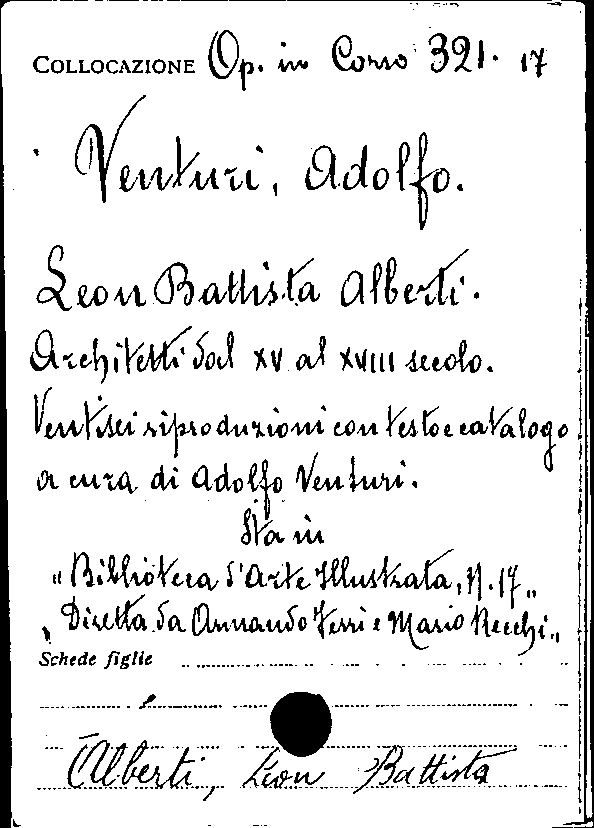 COLLOCAZIONE Op. in Corso 321. 17
Venturi, Adolfo.
Leon Battista Alberti.
Architetti dal XV al XVIII secolo.
Ventisei riproduzioni con testo e catalogo
a cura di Adolfo Venturi.
Sta in
"Biblioteca d'Arte Illustrata, N. 17"
"Diretta da Armando Ferri e Mario Recchi"
Schede figlie
Alberti, Leon Battista